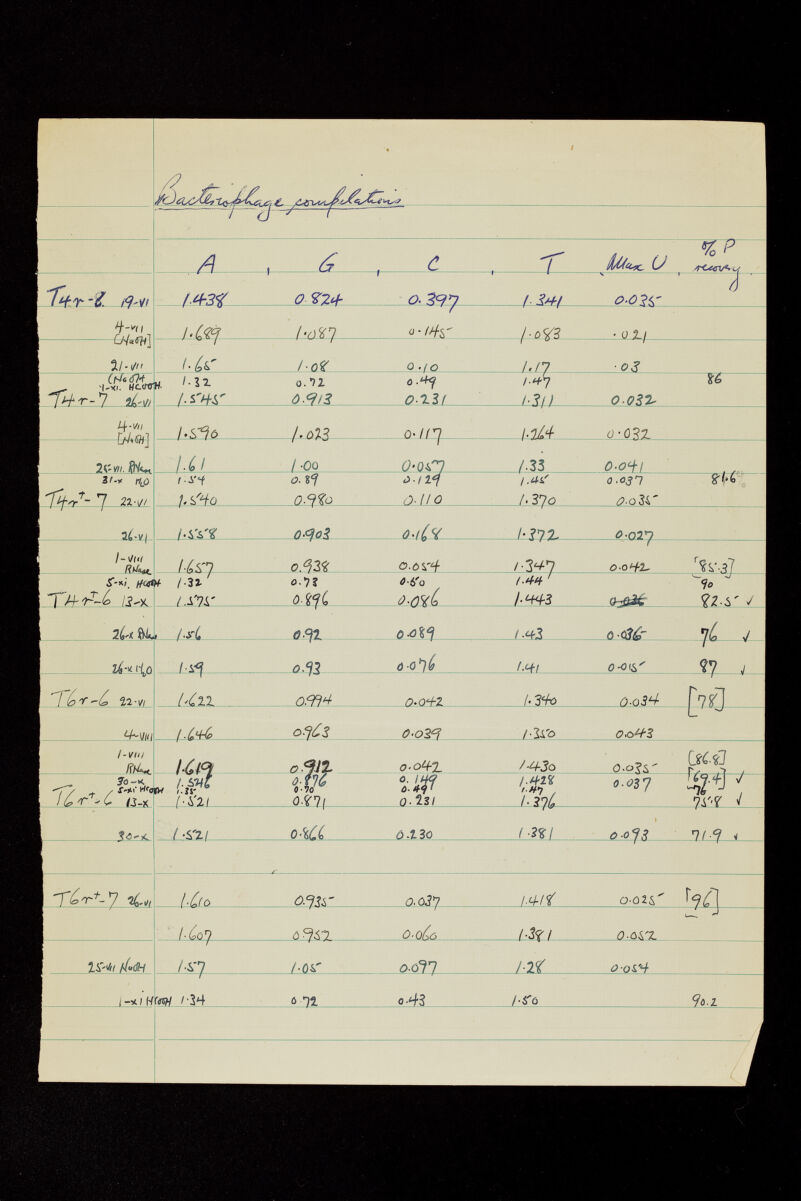 Bacteriophage compilations
A , G , C , T , Max U , % P recovery.
T4r-8. 19-VI 1.438 0.824 0.397 1.341 0.035
4-VII [NaOH] 1.689 1.087 0.145 1.083 .021
21-VII [NaOH 1.65 1.08 0.10 1.17 .03
1-XI. HCOOH 1.32 0.72 0.49 1.47 86
T4r-7 26-VI 1.545 0.913 0.231 1.311 0.032
4-VII [NaOH] 1.590 1.023 0.117 1.264 0.032
25-VII. RNase 1.61 1.00 0.057 1.33 0.041
31-X H2O 1.54 0.89 0.129 1.45 0.037 81.6
T4r+-7 22-VI 1.540 0.980 0.110 1.370 0.035
26-VI 1.558 0.903 0.168 1.372 0.027
1-VIII RNase 1.657 0.938 0.054 1.347 0.042 [85.3]
5-XI. HCOOH 1.32 0.73 0.50 1.44 90
T4r+-6 13-X 1.575 0.896 0.086 1.443 0.036 82.5 ✓
26-X RNase 1.56 0.92 0.089 1.43 0.036 76 ✓
26-X H2O 1.59 0.93 0.076 1.41 0.015 87 ✓
T6r-6 22-VI 1.622 0.994 0.042 1.340 0.034 [78]
4-VIII 1.646 0.963 0.039 1.350 0.043
1-VIII RNase 1.619 0.912 0.042 1.430 0.035 [86.8]
30-X 1.546 0.876 0.149 1.428 0.037 [69.4] ✓
5-XI HCOOH 1.35 0.70 0.49 1.47 76
T6r+-6 13-X 1.521 0.871 0.231 1.376 75.8 ✓
30-X 1.521 0.866 0.230 1.381 0.093 71.9 ✓
T6r+-7 26-VI 1.610 0.935 0.037 1.418 0.025 [96]
1.607 0.952 0.060 1.381 0.052
25-VII NaOH 1.57 1.05 0.097 1.28 0.054
1-XI HCOOH 1.34 0.72 0.43 1.50 90.2